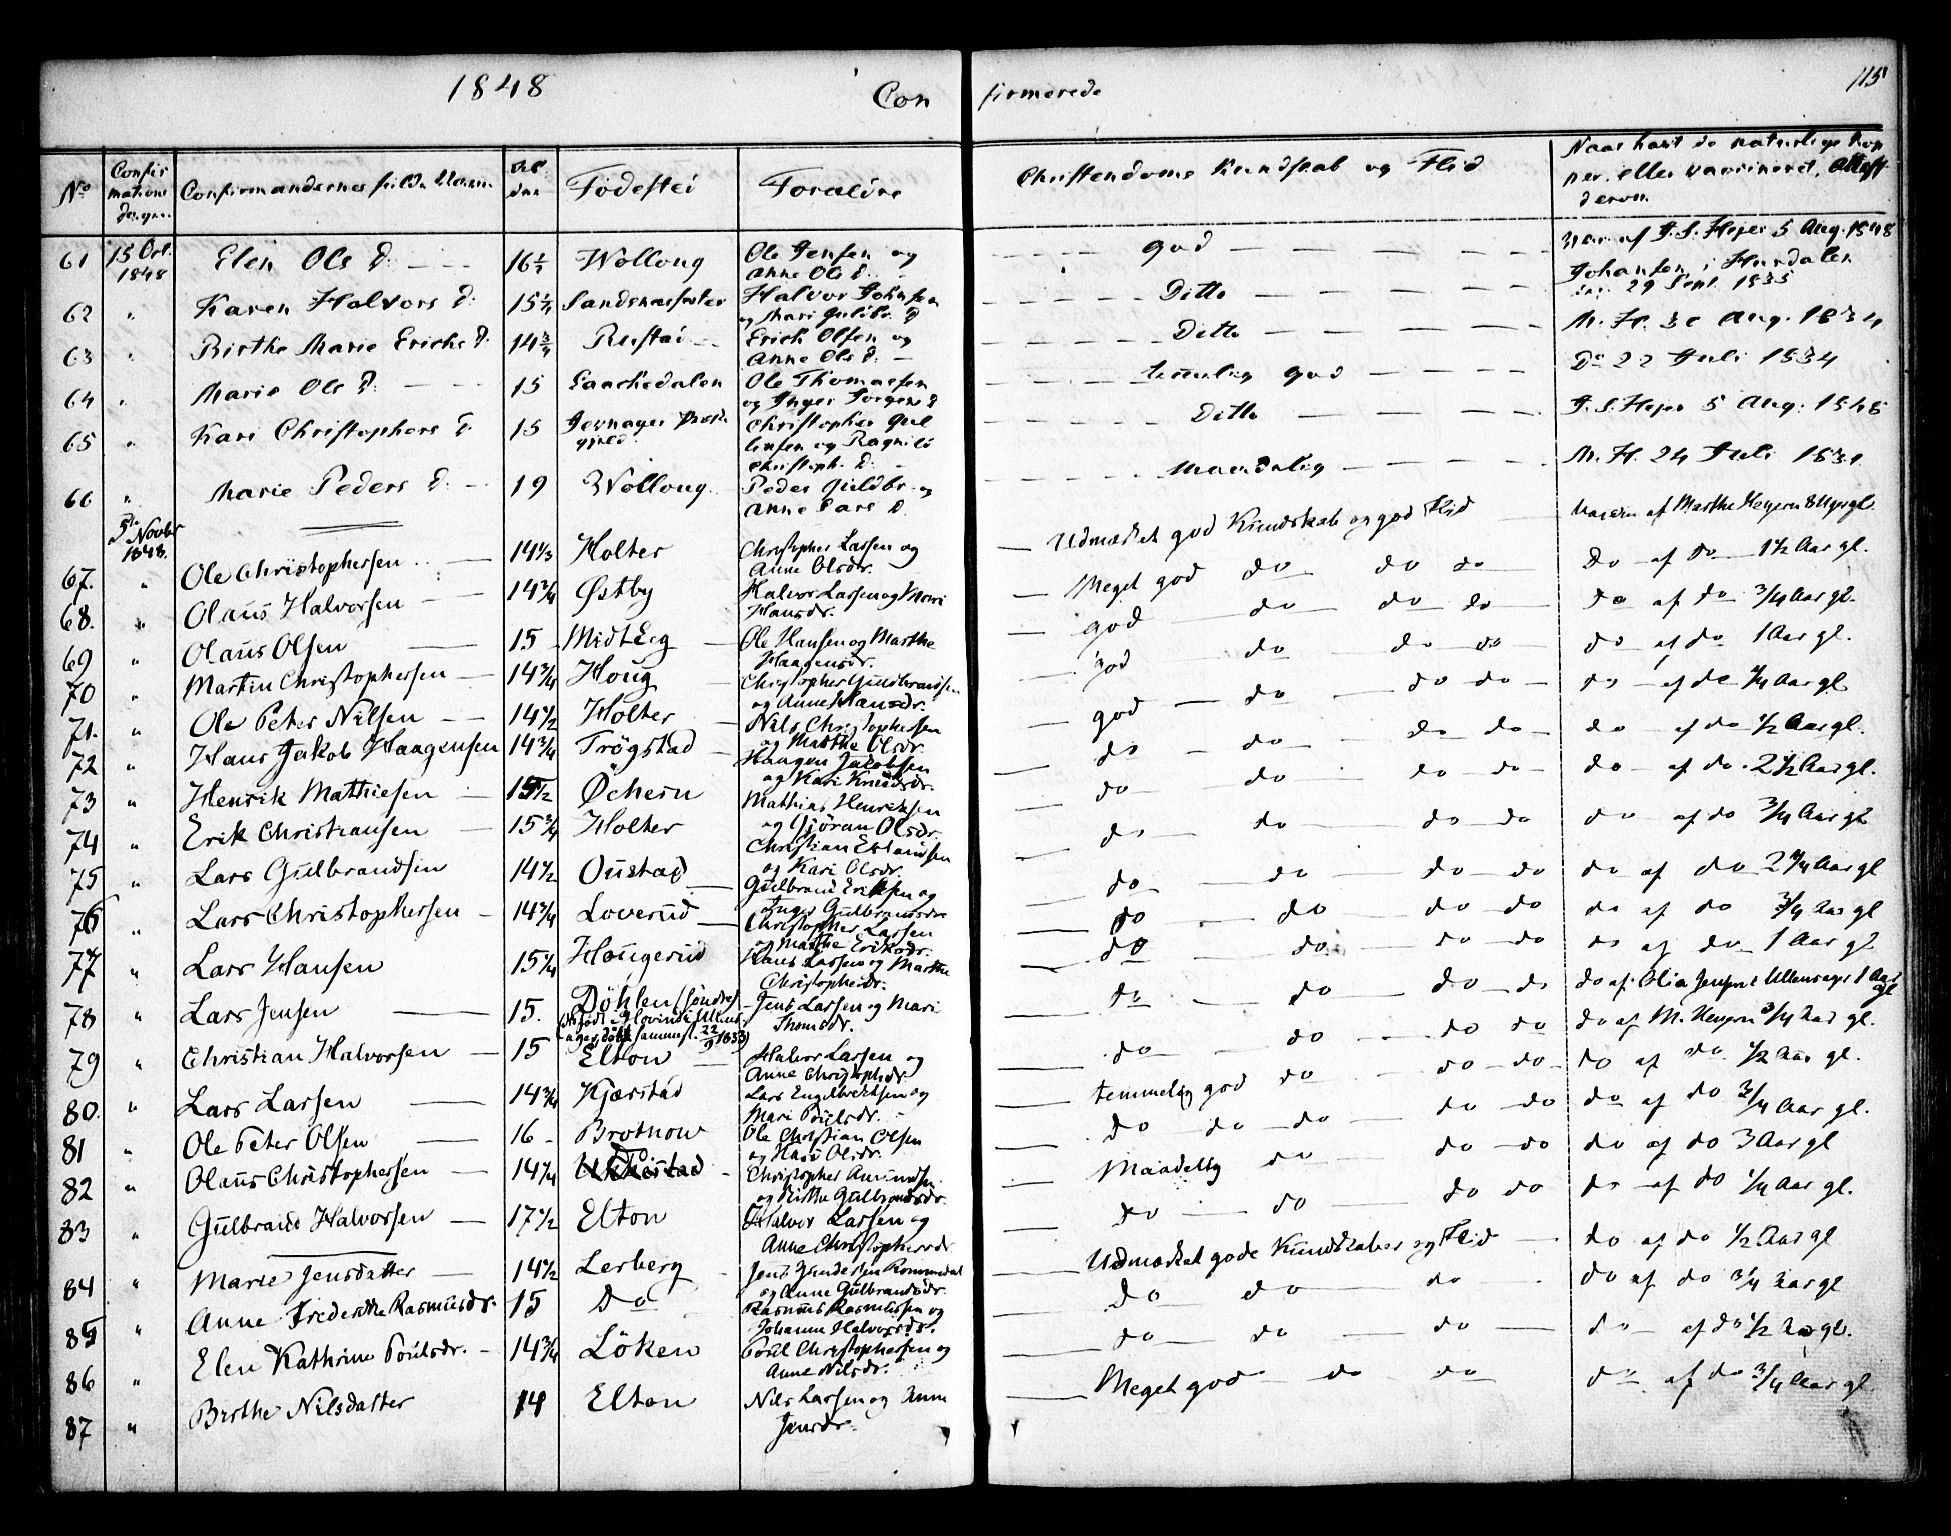 1848 Con firmerede 115
No Confirmations dagen Confirmandernes fulde Navn Fødested Forældre Christendoms Kundskab og Flid Naar havt de naturlige Kop per, eller vaccineret, Attest derom
61 15 Oct. 1848 Elen Ols D. 16½ Wollong Ole Jensen og Anne Ols D. god vac. af J. S. Hejer 5 Aug. 1848
62 " Karen Halvors D. Halvor Johnsen og Mari Gulbr. D Ditto Johansen i Hurdalen 29 Sept. 1835
63 " Birthe Marie Erichs D. 14¾ Rustad Erich Olsen og Anne Ols D. Ditto M. H. 30 Aug. 1834
64 " Marie Ols D. 15 Laachedalen Ole Thomassen og Inger Jørgens D temmelig god Do 22 Juli 1834
65 " Kari Christophers D. 15 Jevnager Præste gjeld Christopher Gul lensen og Ragnild Christoph. D. Ditto J. S. Hejer 5 Aug. 1848
66 " Marie Peders D. 19 Wollong Peder Guldbr. og Anne Lars D. Maadelig M. H. 24 Juli
5te Novbr 1848.
67. " Ole Christophersen 14⅓ Holter Christopher Larsen og Anne Olsdr. Udmærket god Kundskab og god Flid Vaccin af Marthe Heyern 8 Ugr gl.
68. " Olaus Halvorsen 14¾ Østby Halvor Larsen og Mari Hansdr. Meget god do do do Do af do 1½ Aar gl.
69 " Olaus Olsen 15 Midt Eeg Ole Hansen og Marthe Haagensdr. god do do do do af do ¾ Aar gl.
70 " Martin Christophersen 14¾ Houg Christopher Gulbrandsen og Anne Hansdr. god do do do do af do 1 Aar gl.
71. " Ole Peter Nilsen 14½ Holter Nils Christophersen og Marthe Olsdr. god do do do do af do ¼ Aar gl
72 " Hans Jakob Haagensen 14¾ Trögstad Haagen Jakobsen og Kari Knudsdr. do do do do do af do ½ Aar gl.
73 " Henrik Mathiesen 15½ Öchern Mathias Henriksen og Gjöran Olsdr. do do do do do af do 2½ Aar gl.
74 " Erik Christiansen 15¾ Holter Christian og Kari Olsdr. do do do do do af do ¾ Aar gl
75 " Lars Gulbrandsen 14½ Oustad Gulbrand Eriksen og Inger Gulbrandsdr do do do do do af do 2¼ Aar gl
76 " Lars Christophersen 14¾ Loverud Christopher Larsen og Marthe Eriksdr. do do do do do af do ¾ Aar gl
77 " Lars Hansen 15¼ Hougerud Hans Larsen og Marthe Christophdr. do do do do do af do 1 Aar gl
78 " Lars Jensen 15. Döhlen (söndre) (Er født i Hovind i Ullens ager, døbt sammest. 22/9 1833) Jens Larsen og Mari Thomsdr. do do do do do af Olia Jensen i Ullensager 1 Aar gl
79 " Christian Halvorsen 15 Elton Halvor Larsen og Anne Christophdr do do do do do af M. Heyern ¾ Aar gl.
80. " Lars Larsen 14¾ Kjærstad Lars Engelbrektsen og Mari Poulsdr. temmelig god do do do do af do ½ Aar gl.
81 " Ole Peter Olsen 16 Brotnow Ole Christian Olsen og Kari Olsdr. do do do do do do af do ¾ Aar gl.
82 " Olaus Christophersen 14¼ Christopher Amundsen og Birthe Gulbrandsdr. Maadelig do do do do af do 3 Aar gl
83 " Gulbrand Halvorsen 17½ Elton Halvor Larsen og Anne Christophersdr. do do do do do af do ¼ Aar gl.
84 " Marie Jensdatter 14½ Lerberg Jens Romedal og Anne Gulbrandsdr. Udmærket gode Kundskaber og Flid do af do ½ Aar gl
85 " Anne Frederikke Rasmusdr. 15 Do Rasmus Rasmussen og Johanne Halvorsdr. do do do do af do ¾ Aar gl
86 " Elen Kathrine Poulsdr. 14¾ Löken Poul Christophersen og Anne Nilsdr. do do do do af do ½ Aar gl.
87 " Birthe Nilsdatter 14 Elton Nils Larsen og Anne Jensdr. Meget god do do do af do ¾ Aar gl.